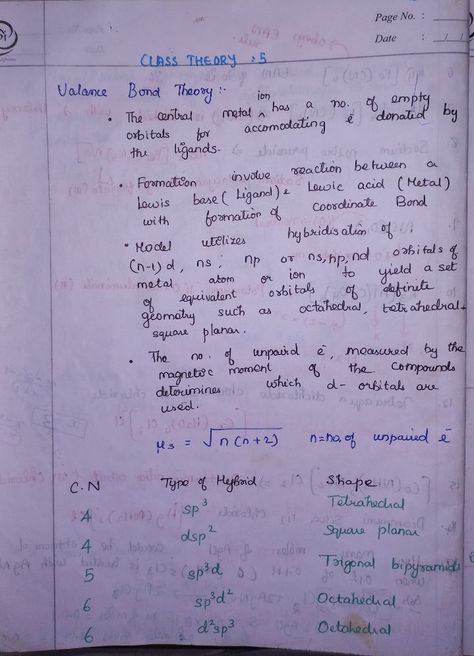 Page No. :
Date : / /
CLASS THEORY : 5
Valance Bond Theory :-
• The central metal ion has a no. of empty
orbitals for accomodating ē donated by
the ligands.
• Formation involve reaction between a
Lewis base (Ligand) & Lewic acid (Metal)
with formation of coordinate Bond
• Model utilizes hybridisation of
(n-1)d, ns, np or ns, np, nd orbitals of
metal atom or ion to yield a set
of equivalent orbitals of definite
geometry such as octahedral, tetrahedral +
square planar.
• The no. of unpaird ē, measured by the
magnetic moment of the compounds
determines which d- orbitals are
used.
μs = √n(n+2) n=no. of unpaired ē
C.N Type of Hybrid Shape
4 sp³ Tetrahedral
4 dsp² Square planar
5 sp³d Trigonal bipyramida
6 sp³d² Octahedral
6 d²sp³ Octahedral